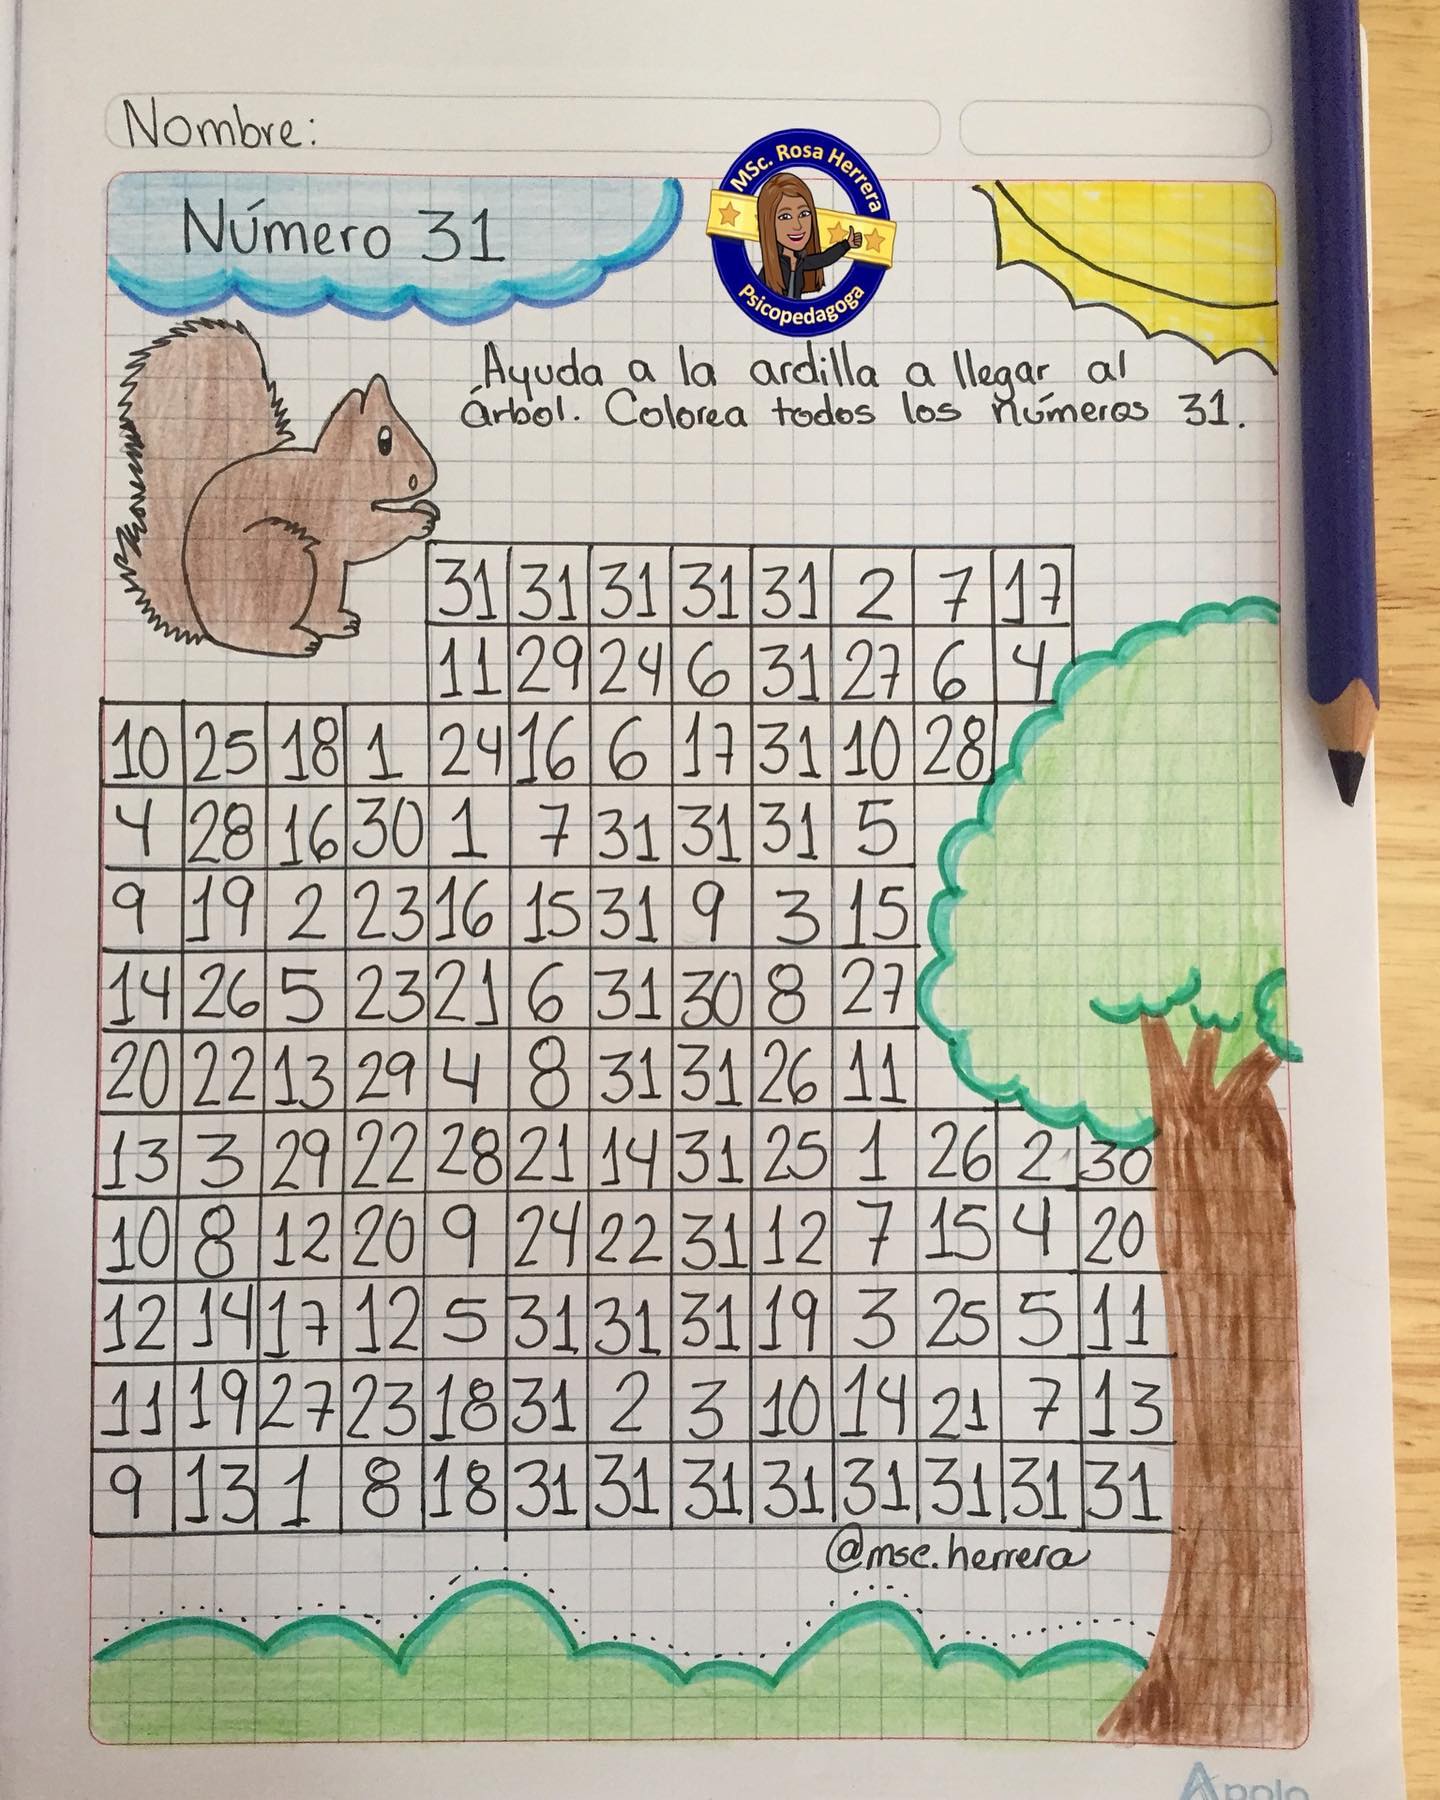 Nombre:
MSc. Rosa Herrera
Psicopedagoga
Número 31
Ayuda a la ardilla a llegar al
árbol. Colorea todos los números 31.
31 31 31 31 31 2 7 17
11 29 24 6 31 27 6 4
10 25 18 1 24 16 6 17 31 10 28
4 28 16 30 1 7 31 31 31 5
9 19 2 23 16 15 31 9 3 15
14 26 5 23 21 6 31 30 8 27
20 22 13 29 4 8 31 31 26 11
13 3 29 22 28 21 14 31 25 1 26 2 30
10 8 12 20 9 24 22 31 12 7 15 4 20
12 14 17 12 5 31 31 31 19 3 25 5 11
11 19 27 23 18 31 2 3 10 14 21 7 13
9 13 1 8 18 31 31 31 31 31 31 31 31
@msc.herrera
Apolo